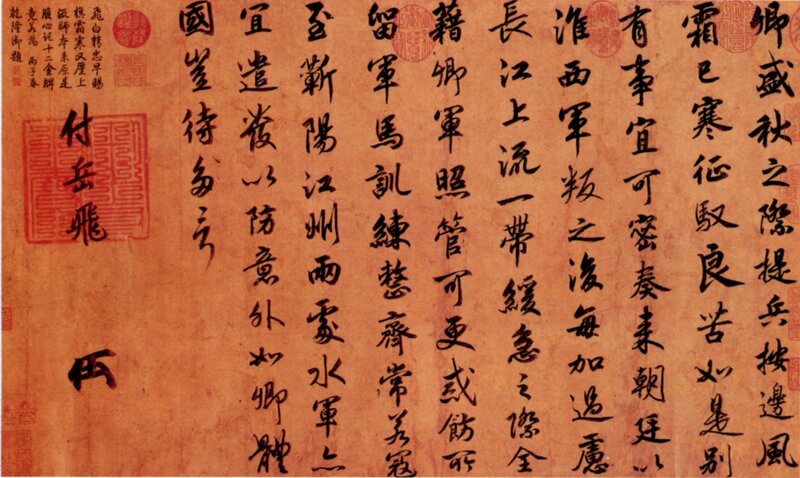 卿盛秋之際提兵按邊風
霜已寒征馭良苦如是別
有事宜可密奏來朝廷以
淮西軍叛之後每加過慮
長江上流一帶緩急之際全
藉卿軍照管可更戒飭所
留軍馬訓練整齊常若寇
至蘄陽江州兩處水軍亦
宜遣發以防意外如卿體
國豈待多言
付岳飛
飛白精忠早賜
旗霜寒又壓上
游師本來原是
腹心託十二金牌
竟若為 丙子春
乾隆御題